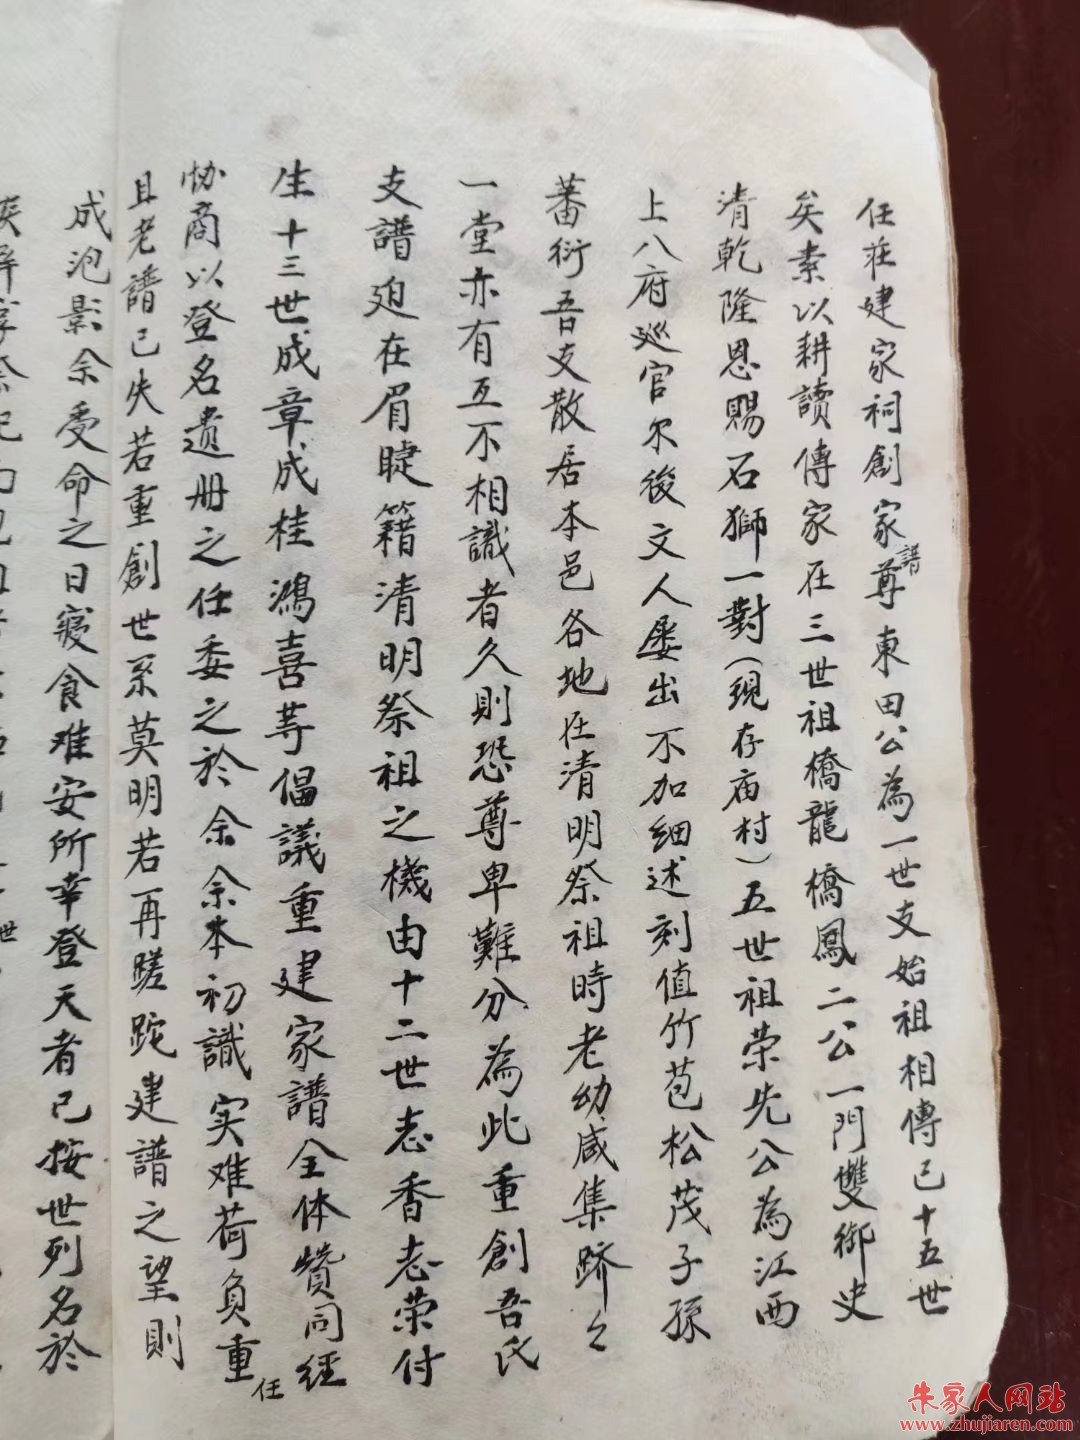 任莊建家祠創家譜尊東田公為一世支始祖相傳已十五世
矣素以耕讀傳家在三世祖橋龍橋鳳二公一門雙御史
清乾隆恩賜石獅一對(現存庙村)五世祖荣先公為江西
上八府巡官尔後文人屡出不加细述刻值竹苞松茂子孫
蕃衍吾支散居本邑各地在清明祭祖時老幼咸集跻々
一堂亦有互不相識者久則恐尊卑難分為此重創吾氏
支譜廹在眉睫籍清明祭祖之機由十二世志香志荣付
生十三世成章、成桂鴻喜䓁倡議重建家譜全体贊同經
协商以登名遺册之任委之於余余本初識实难荷负重任
且老譜已失若重創世系莫明若再蹉跎建譜之望則
成泡影余受命之日寢食难安所幸登天者已按世列名於
世
朱家人网站
www.zhujiaren.com